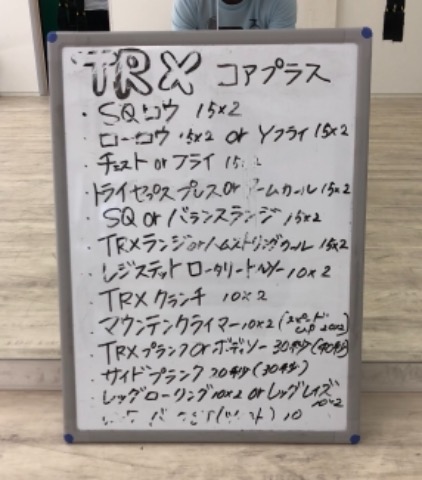 TRX コアプラス
・SQロウ 15×2
・ローロウ 15×2 or Yフライ 15×2
・チェスト or フライ 15
・トライセップスプレス or アームカール 15×2
・SQ or バランスランジ 15×2
・TRXランジ or ハムストリングカール 15×2
・レジステッド ロータリートルソー 10×2
・TRX クランチ 10×2
・マウンテンクライマー 10×2 (スピードUP 20×2)
・TRXプランク or ボディソー 30秒 (40秒)
・サイドプランク 20秒 (30秒)
・レッグローリング 10×2 or レッグレイズ 10×2
10